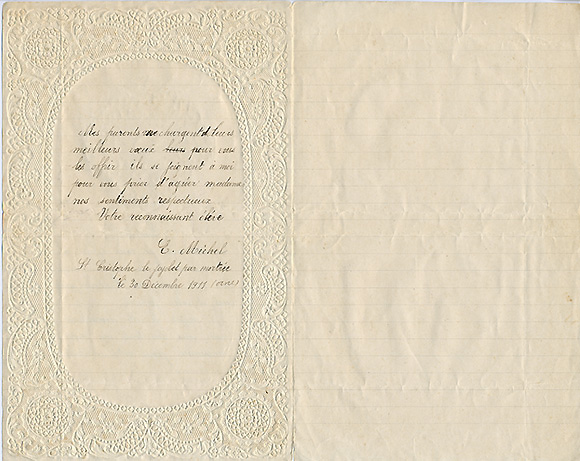 Mes parents me chargent de leurs
meilleurs vœux leurs pour vous
les offrir ils se joignent à moi
pour vous prier d'agréer madame
nos sentiments respectueux
Votre reconnaissant élève
E. Michel
St Cristophe le jajolet par mortrée
le 30 Décembre 1911 (orne)